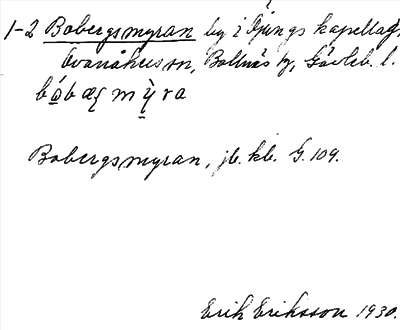 1-2 Bobergsmyran by i Öjungs kapellag,
Ovanåkers sn, Bollnäs tg, Gävleb. l.
Bobergsmyran, jb. kb. G. 109.
Erik Eriksson 1930.